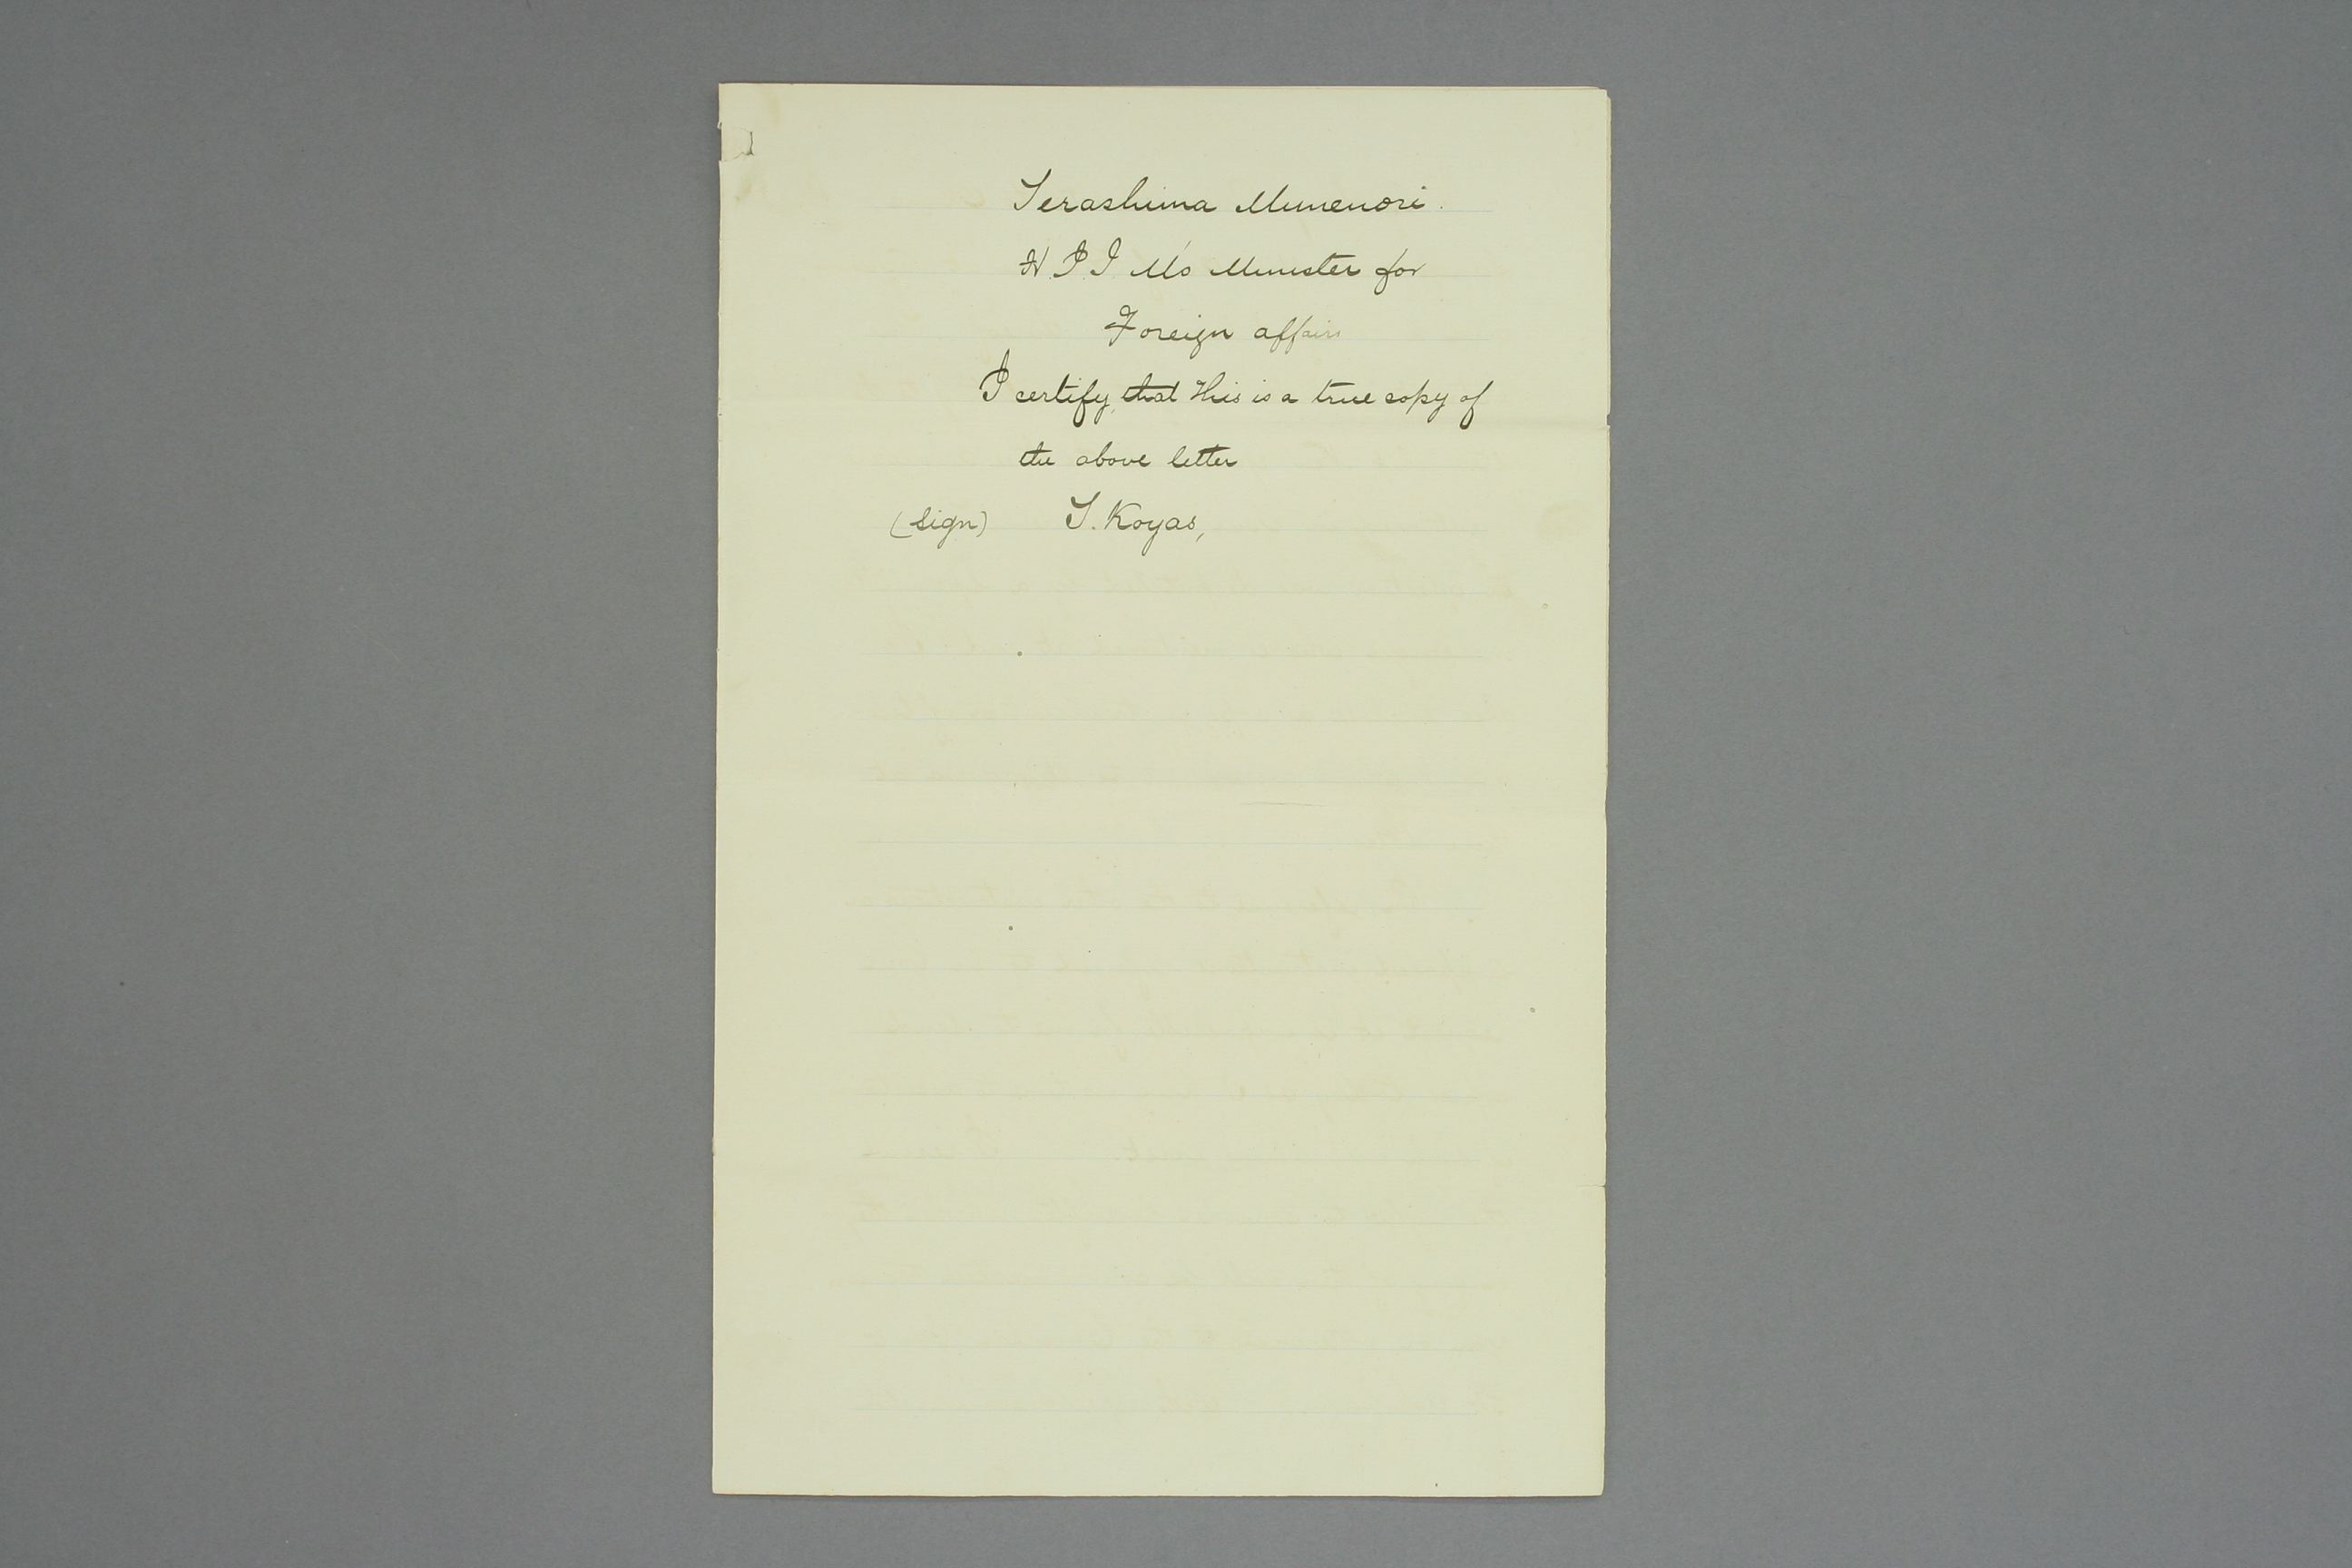 Terashima Munenori.
H. I. J. M's Minister for
Foreign affairs
I certify, that this is a true copy of
the above letter
(Sign) T. Koyas,